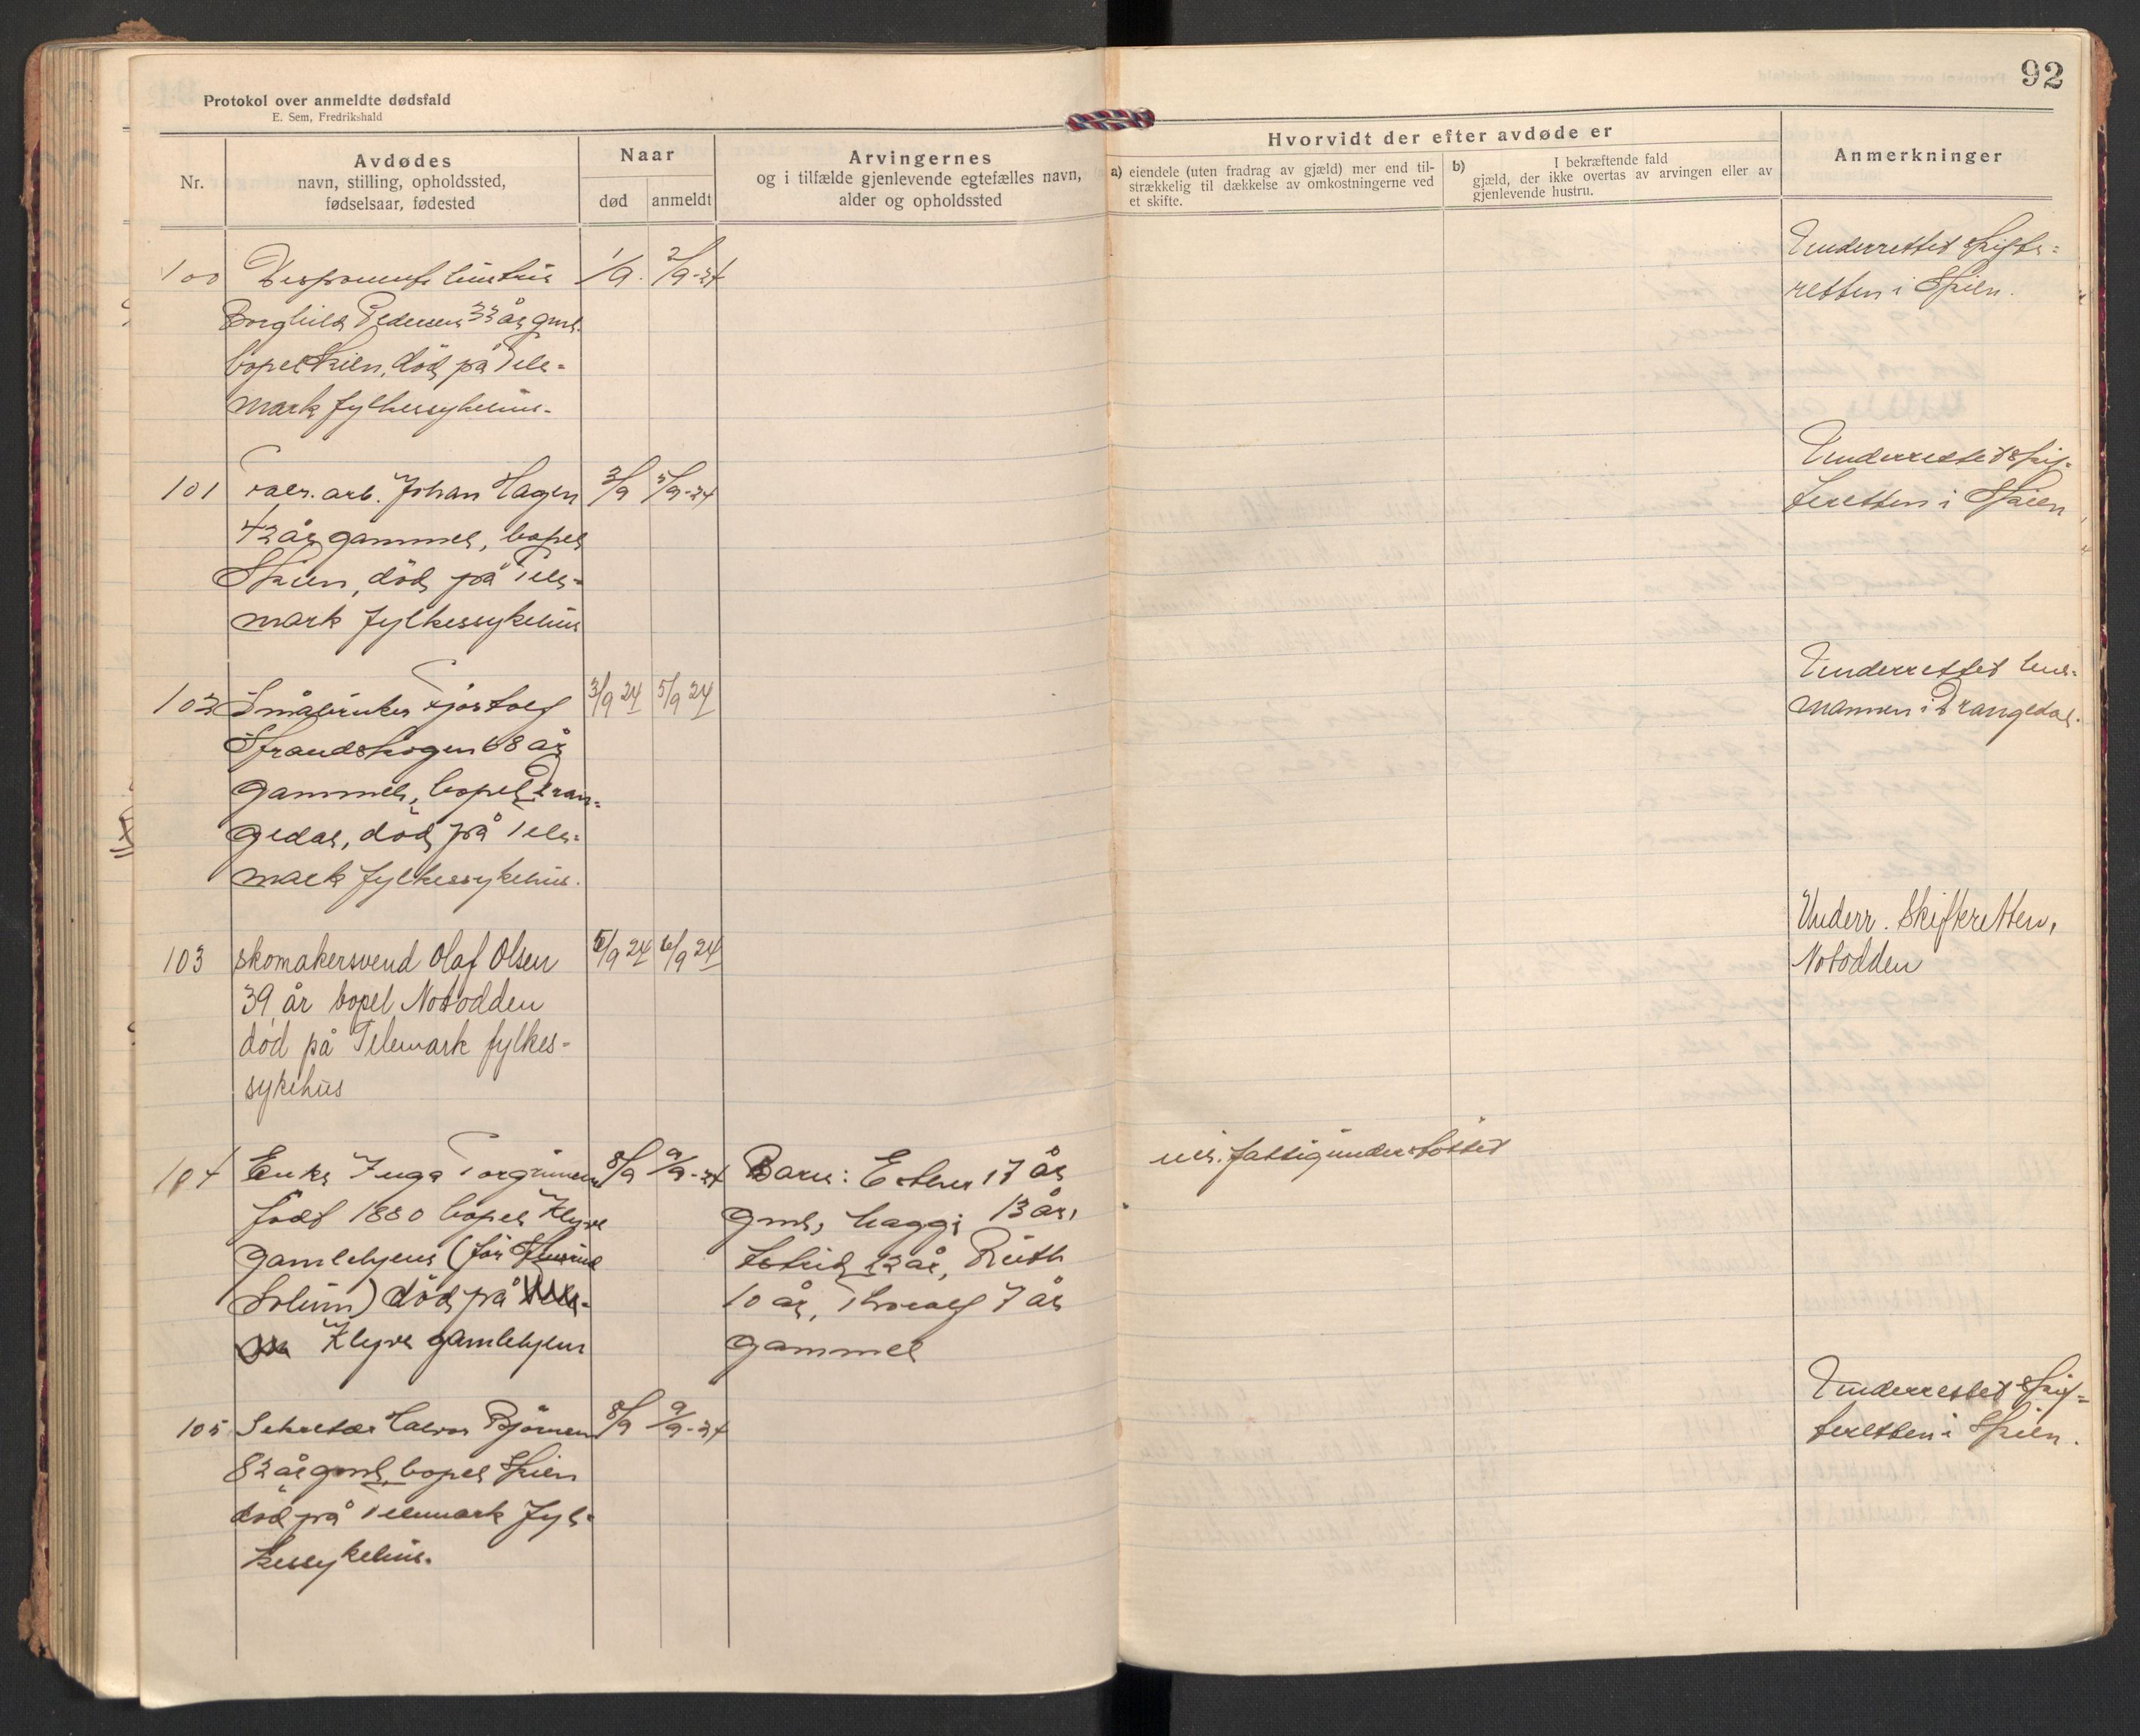 92
Protokol over anmeldte dødsfald
E. Sem, Fredrikshald
Nr.
Avdødes
navn, stilling, opholdssted,
fødselsaar, fødested
Naar
død
anmeldt
Arvingernes
og i tilfælde gjenlevende egtefælles navn,
alder og opholdssted
Hvorvidt der efter avdøde er
a) eiendele (uten fradrag av gjæld) mer end til-
strækkelig til dækkelse av omkostningerne ved
et skifte.
b) I bekræftende fald
gjæld, der ikke overtas av arvingen eller av
gjenlevende hustru.
Anmerkninger
100 hustru 1/9. 2/9-24 Underrettet skifte-
Borghild Pedersen 33 år gml. retten i Skien.
bopel Skien, död på Tele-
mark fylkessykehus.
101 Fabr. arb. Johan Hagen 3/9 5/9-24 Underrettet skif-
42 år gammel, bopel teretten i Skien
Skien, död på Tele-
mark fylkessykehus
102 Småbruker Fjostolf 3/9 24 5/9 24 Underrettet lens-
Strandskogen 68 år mannen i Drangedal.
gammel, bopel Dran-
gedal, död på Tele-
mark fylkessykehus.
103 skomakersvend Olaf Olsen 5/9 24 6/9 24 Underr. Skifteretten,
39 år bopel Notodden Notodden
död på Telemark fylkes-
sykehus
104 Enke Inga Torgrimsen 8/9 9/9-24 Barn: Esther 17 år fattigunderstöttet
födt 1880 bopel Klyve gml, Haggi 13 år,
gamlehjem (för 12 år, Ruth
Solum) död på 10 år, Thorolf 7 år
Klyve gamlehjem gammel
105 Sekretær Halvor Björnsen 8/9 9/9-24 Underrettet skif-
82 år gml, bopel Skien teretten i Skien.
död på Telemark fyl-
kessykehus.